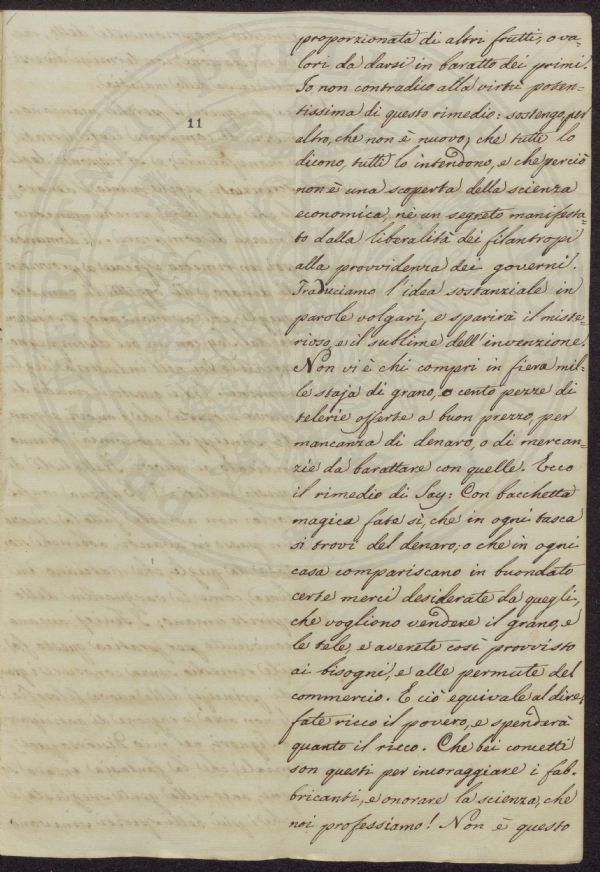 11
proporzionata di altri frutti, o va=
lori da darsi in baratto dei primi.
Io non contradico alla virtù poten=
tissima di questo rimedio: sostengo, per
altro, che non è nuovo, che tutti lo
dicono, tutti lo intendono, e che perciò
non è una scoperta della scienza
economica, nè un segreto manifesta=
to dalla liberalità dei filantropi
alla provvidenza dei governi.
Traduciamo l'idea sostanziale in
parole volgari, e sparirà il miste=
rioso, e il sublime dell'invenzione.
Non vi è chi compri in fiera mil=
le staja di grano, o cento pezze di
telerie offerte a buon prezzo, per
mancanza di denaro, o di mercan=
zie da barattare con quelle. Ecco
il rimedio di Say: Con bacchetta
magica fate sì, che in ogni tasca
si trovi del denaro; o che in ogni
casa compariscano in buondato
certe merci desiderate da quegli,
che vogliono vendere il grano, e
le tele, e averete così provvisto
ai bisogni, e alle permute del
commercio. E ciò equivale al dire,
fate ricco il povero, e spenderà
quanto il ricco. Che bei concetti
son questi per incoraggiare i fab=
bricanti, e onorare la scienza, che
noi professiamo! Non è questo